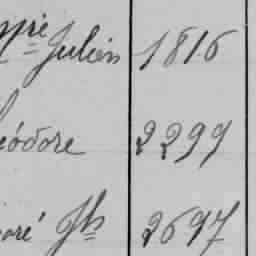 ppe Julien 1816
éodore 2299
oré Jh 2697